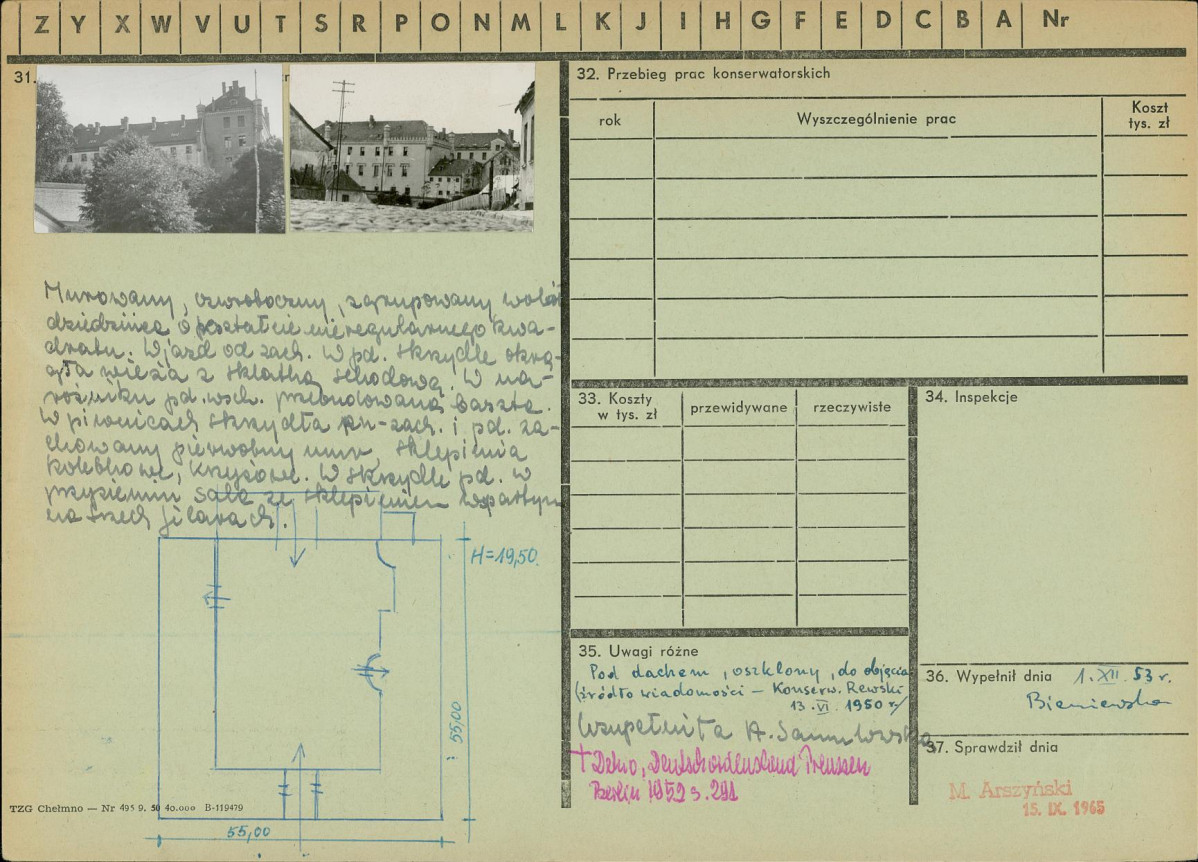 Z Y X W V U T S R P O N M L K J I H G F E D C B A Nr
31.
Murowany, czworoboczny, zgrupowany wokół
dziedzińca o kształcie nieregularnego kwa-
dratu. Wjazd od zach. W pd. skrzydle okrą-
gła wieża z klatką schodową. W na-
rożniku pd. wsch. przebudowana baszta.
W piwnicach skrzydła pn-zach. i pd. za-
chowany pierwotny mur, sklepienia
kolebkowe, krzyżowe. W skrzydle pd. w
przyziemiu sala ze sklepieniem wspartym
na trzech filarach.
H=19,50
55,00
55,00
TZG Chełmno — Nr 495 9. 50 40.000 B-119479
32. Przebieg prac konserwatorskich
rok
Wyszczególnienie prac
Koszt
tys. zł
33. Koszty
w tys. zł
przewidywane
rzeczywiste
34. Inspekcje
35. Uwagi różne
Pod dachem, oszklony, do objęcia
(źródło wiadomości — Konserw. Rewski
13.VI 1950 r/
Uzupełniła A.
+ Dehio, Deutschordensland Preussen
Berlin 1952 s. 291
36. Wypełnił dnia 1.XII.53 r.
Bieniewska
37. Sprawdził dnia
M. Arszyński
15. IX. 1965